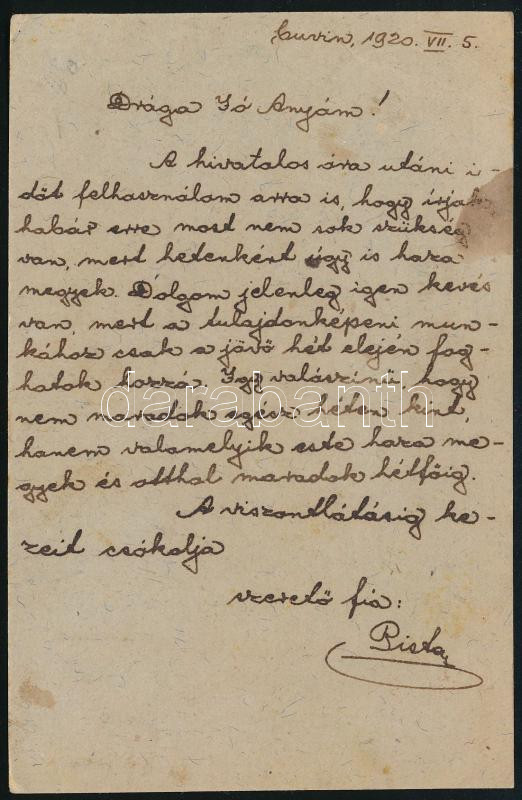 Cuvin, 1920. VII. 5.
Drága Jó Anyám!
A hivatalos óra utáni i-
dőt felhasználom arra is, hogy írjak,
habár erre most nem sok szükség
van, mert hetenként úgy is haza
megyek. Dolgom jelenleg igen kevés
van, mert a tulajdonképeni mun-
kához csak a jövő hét elején fog-
hatok hozzá. Így valószínű, hogy
nem maradok egész héten kint,
hanem valamelyik este haza me-
gyek és otthal maradok hétfőig.
A viszontlátásig ke-
zeit csókolja
szerető fia:
Pista
darabanth